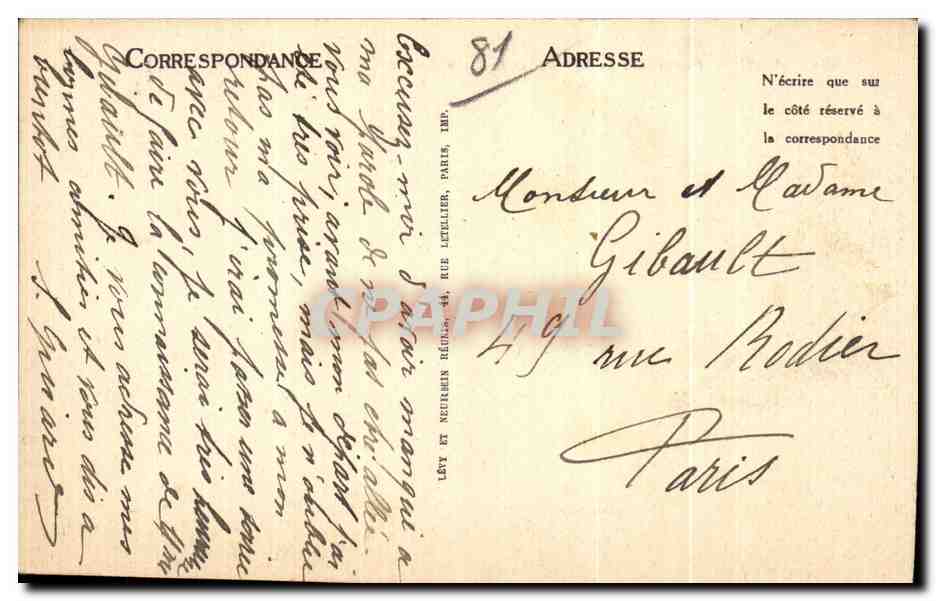 CORRESPONDANCE
81
ADRESSE
N'écrire que sur
le côté réservé à
la correspondance
Excusez-moi d'avoir manqué à
ma parole de n'pas être allée
vous voir, avant mon départ j'ai
été très prise, mais je n'oublie
pas ma promesse à mon
retour j'irai passer une soirée
avec vous, je serai très heureuse
de faire la connaissance de Mr
Gibault. Je vous adresse mes
bonnes amitiés et vous dis à
bientôt
LÉVY ET NEURDEIN RÉUNIS, 44, RUE LETELLIER, PARIS, IMP.
Monsieur et Madame
Gibault
49 rue Rodier
Paris
CPAPHIL